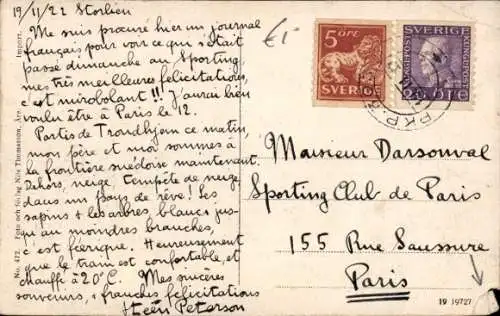 19/11/22 Storlien
Me suis procuré hier un journal
français pour voir ce qui s'était
passé dimanche au Sporting
mes très meilleures félicitations,
c'est mirobolant!!! J'aurai bien
voulu être à Paris le 12.
Partis de Trondhjem ce matin,
mon père et moi sommes à
la frontière suédoise maintenant.
Dehors, neige, tempête de neige,
dans un pays de rêve! Les
sapins & les arbres, blancs jus-
qu'au moindres branches,
c'est féerique. Heureusement
que le train est confortable, et
chauffé à 20°C. Mes sincères
souvenirs, & franches félicitations
Steen Peterson
No. 472. Foto och förlag Nils Thomasson, Åre. Import.
€1-
5 ÖRE
SVERIGE
SVERIGE
20 ÖRE
PKP
Monsieur Darsonval
Sporting Club de Paris
155 Rue Saussure
Paris
19 19727